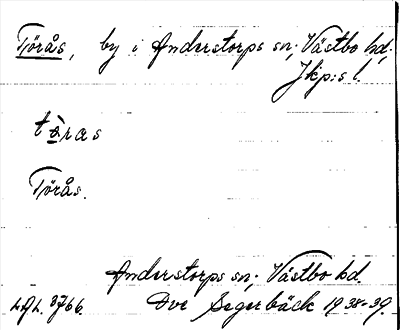 Törås, by i Anderstorps sn, Västbo hd,
Jkp:s l.
tò̱ras
Törås.
Anderstorps sn, Västbo hd.
LAL. 3766. Ove Segerbäck 1938-39.